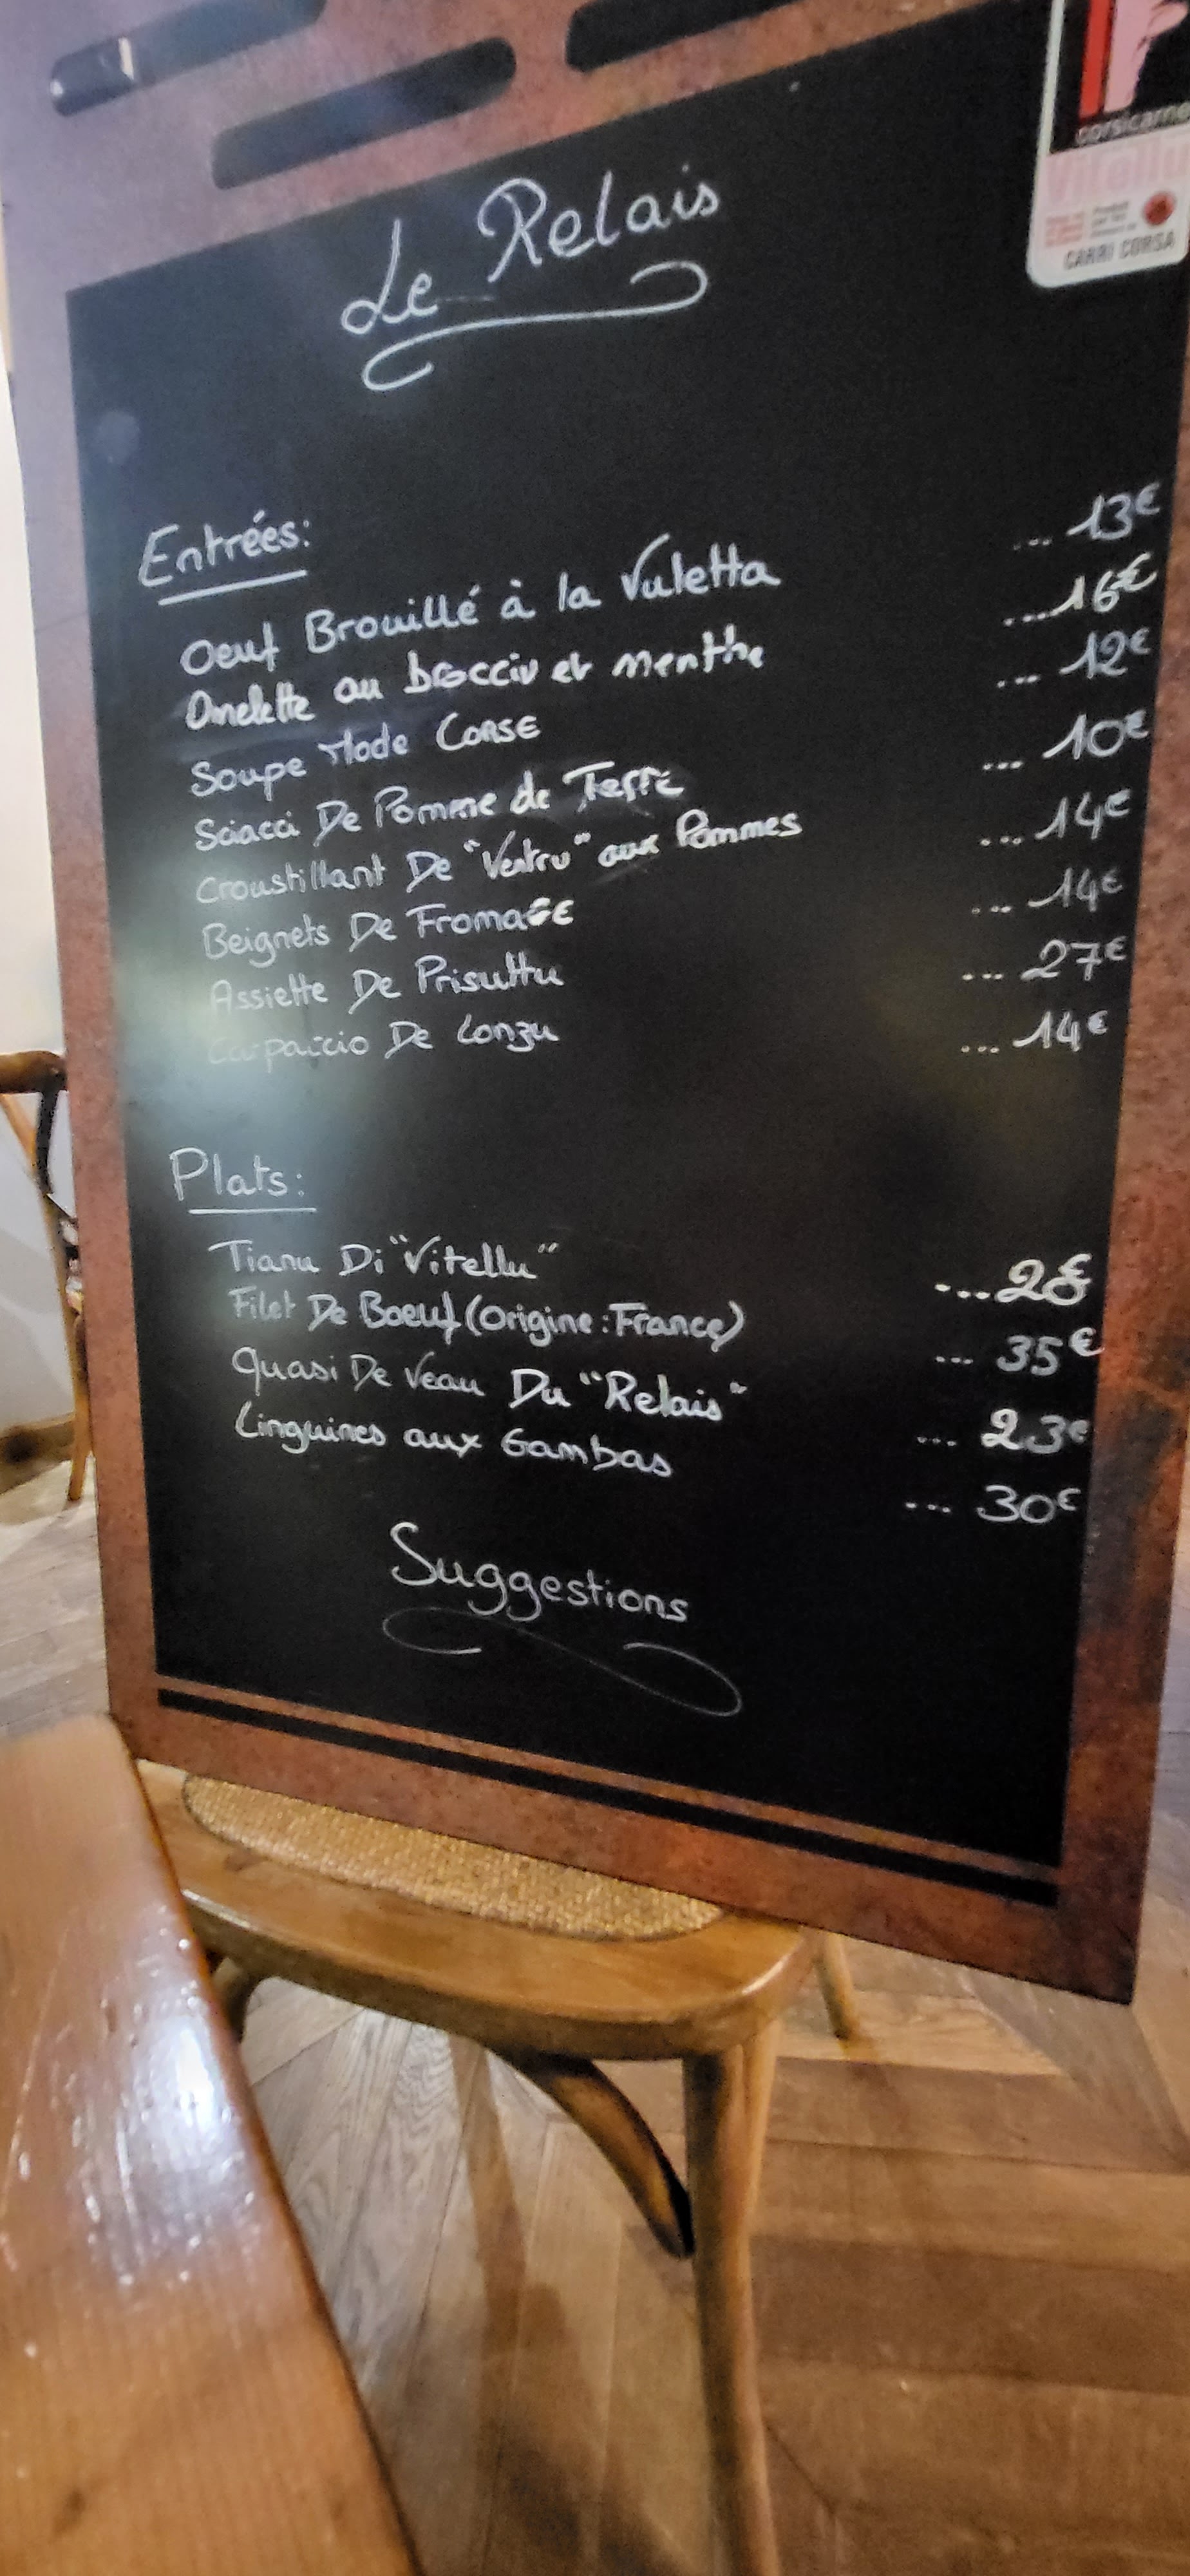 corsicarne
Vitellu
CARRI CORSA
Le Relais
Entrées:
Oeuf Brouillé à la Vuletta ... 13€
Omelette au brocciu et menthe ....16€
Soupe Mode Corse ... 12€
Sciacci De Pomme de Terre ... 10€
Croustillant De "Ventru" aux Pommes ... 14€
Beignets De Fromage ... 14€
Assiette De Prisuttu ... 27€
Carpaccio De Lonzu ... 14€
Plats:
Tianu Di "Vitellu"
Filet De Boeuf (Origine : France) ... 35€
Quasi De Veau Du "Relais" ... 23€
Linguines aux Gambas ... 30€
Suggestions